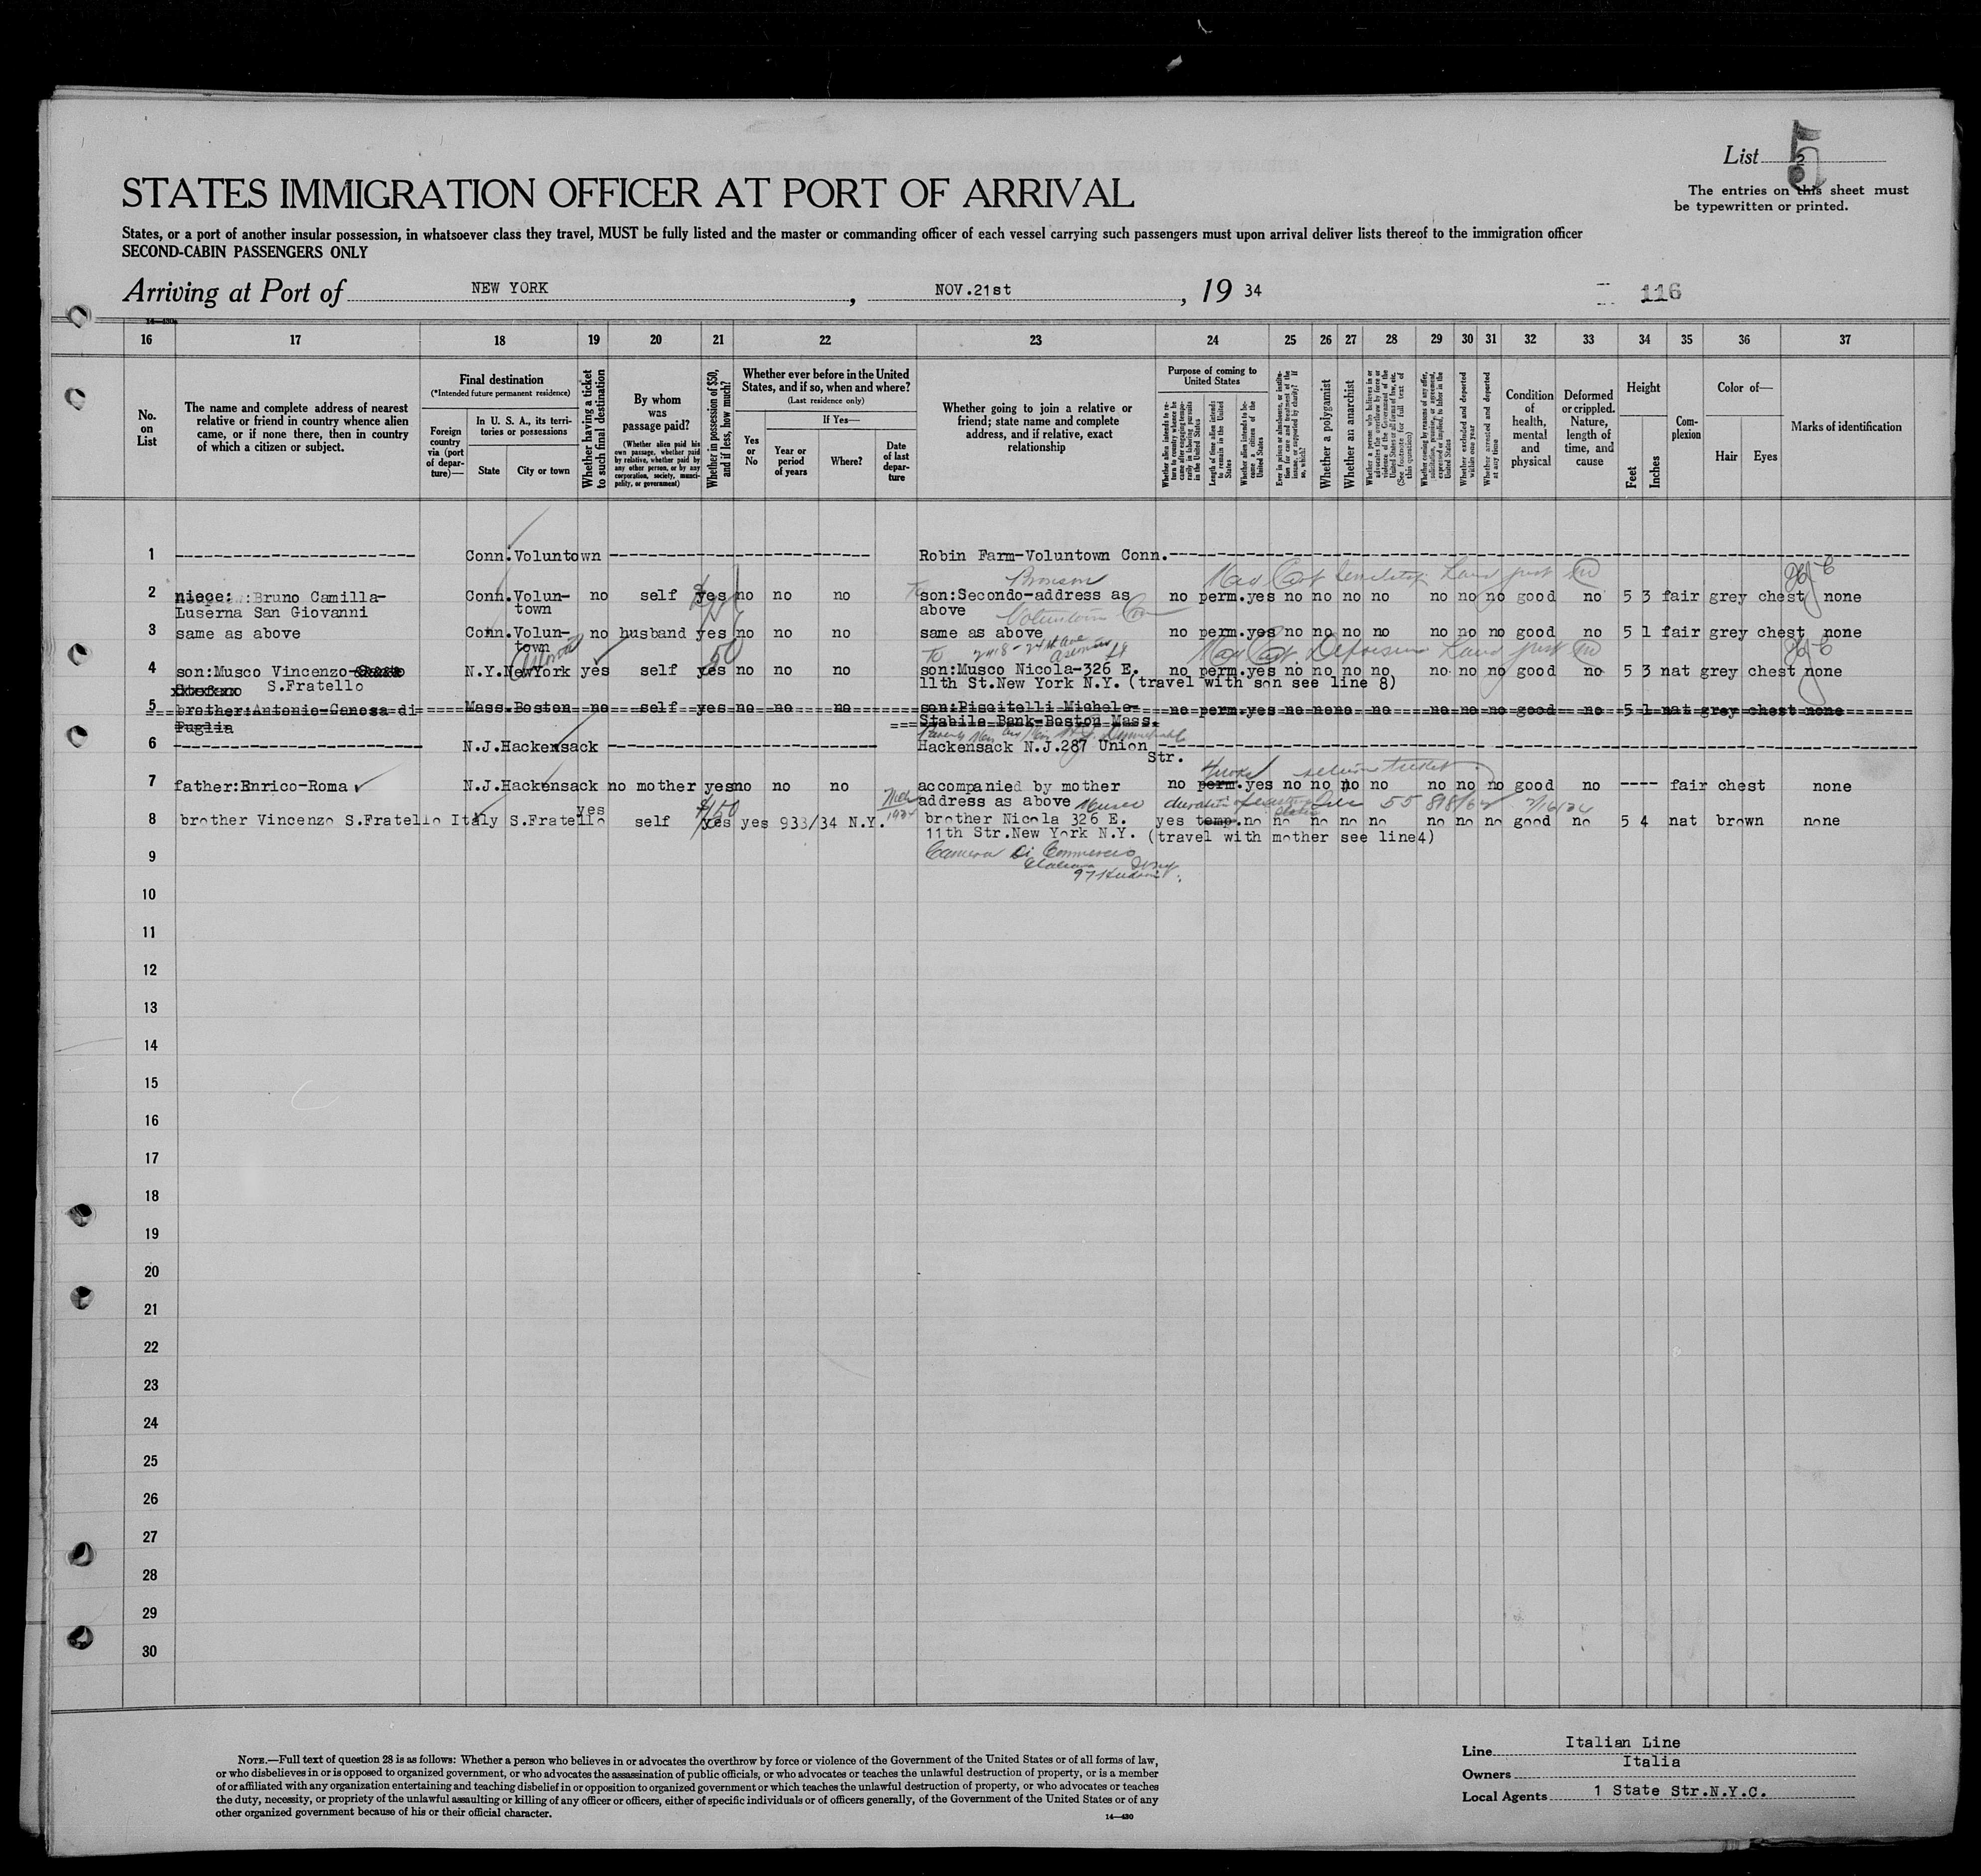 List 5
The entries on this sheet must
be typewritten or printed.
STATES IMMIGRATION OFFICER AT PORT OF ARRIVAL
States, or a port of another insular possession, in whatsoever class they travel, MUST be fully listed and the master or commanding officer of each vessel carrying such passengers must upon arrival deliver lists thereof to the immigration officer
SECOND-CABIN PASSENGERS ONLY
Arriving at Port of NEW YORK, NOV.21st, 19 34
116
14—430
16 17 18 19 20 21 22 23 24 25 26 27 28 29 30 31 32 33 34 35 36 37
No. on List
The name and complete address of nearest relative or friend in country whence alien came, or if none there, then in country of which a citizen or subject.
Final destination
(*Intended future permanent residence)
Foreign country via (port of departure)—
In U. S. A., its territories or possessions
State
City or town
Whether having a ticket to such final destination
By whom was passage paid?
(Whether alien paid his own passage, whether paid by relative, whether paid by any other person, or by any corporation, society, municipality, or government)
Whether in possession of $50, and if less, how much?
Whether ever before in the United States, and if so, when and where?
(Last residence only)
Yes or No
If Yes—
Year or period of years
Where?
Date of last departure
Whether going to join a relative or friend; state name and complete address, and if relative, exact relationship
Purpose of coming to United States
Whether alien intends to return to country whence he came after engaging temporarily in laboring pursuits in the United States
Length of time alien intends to remain in the United States
Whether alien intends to become a citizen of the United States
Ever in prison or almshouse, or institution for care and treatment of the insane, or supported by charity? If so, which?
Whether a polygamist
Whether an anarchist
Whether a person who believes in or advocates the overthrow by force or violence of the Government of the United States or all forms of law, etc. (See footnote for full text of this question)
Whether coming by reason of any offer, solicitation, promise, or agreement, expressed or implied, to labor in the United States
Whether excluded and deported within one year
Whether arrested and deported at any time
Condition of health, mental and physical
Deformed or crippled. Nature, length of time, and cause
Height
Feet
Inches
Complexion
Color of—
Hair
Eyes
Marks of identification
1 Conn. Voluntown Robin Farm-Voluntown Conn.
2 niece: Bruno Camilla- Conn. Volun- no self yes no no no son:Secondo-address as no perm. yes no no no no no no no good no 5 3 fair grey chest none
Luserna San Giovanni town above
3 same as above Conn. Volun- no husband yes no no no same as above no perm. yes no no no no no no no good no 5 1 fair grey chest none
town
50
4 son:Musco Vincenzo- N.Y. NewYork yes self yes no no no son:Musco Nicola-326 E. no perm. yes no no no no no no no good no 5 3 nat grey chest none
S.Fratello 11th St.New York N.Y. (travel with son see line 8)
5 brother:Antonio-Canosa di Mass. Boston no self yes no no no son:Piscitelli Michele- no perm. yes no none no no no no good no 5 1 nat grey chest none
Puglia Stabile Bank-Boston Mass.
6 N.J. Hackensack Hackensack N.J.287 Union
Str.
return ticket
7 father:Enrico-Roma N.J. Hackensack no mother yes no no no accompanied by mother no perm. yes no no no no no no no good no ---- fair chest none
address as above Musco
8 brother Vincenzo S.Fratello Italy S.Fratello yes self yes yes 933/34 N.Y. brother Nicola 326 E. yes temp. no no no no no no no no good no 5 4 nat brown none
11th Str.New York N.Y. (travel with mother see line4)
9 Camera Di Commercio
10
11
12
13
14
15
16
17
18
19
20
21
22
23
24
25
26
27
28
29
30
NOTE.—Full text of question 28 is as follows: Whether a person who believes in or advocates the overthrow by force or violence of the Government of the United States or of all forms of law,
or who disbelieves in or is opposed to organized government, or who advocates the assassination of public officials, or who advocates or teaches the unlawful destruction of property, or is a member
of or affiliated with any organization entertaining and teaching disbelief in or opposition to organized government or which teaches the unlawful destruction of property, or who advocates or teaches
the duty, necessity, or propriety of the unlawful assaulting or killing of any officer or officers, either of specific individuals or of officers generally, of the Government of the United States or of any
other organized government because of his or their official character.
14—430
Line Italian Line
Owners Italia
Local Agents 1 State Str.N.Y.C.